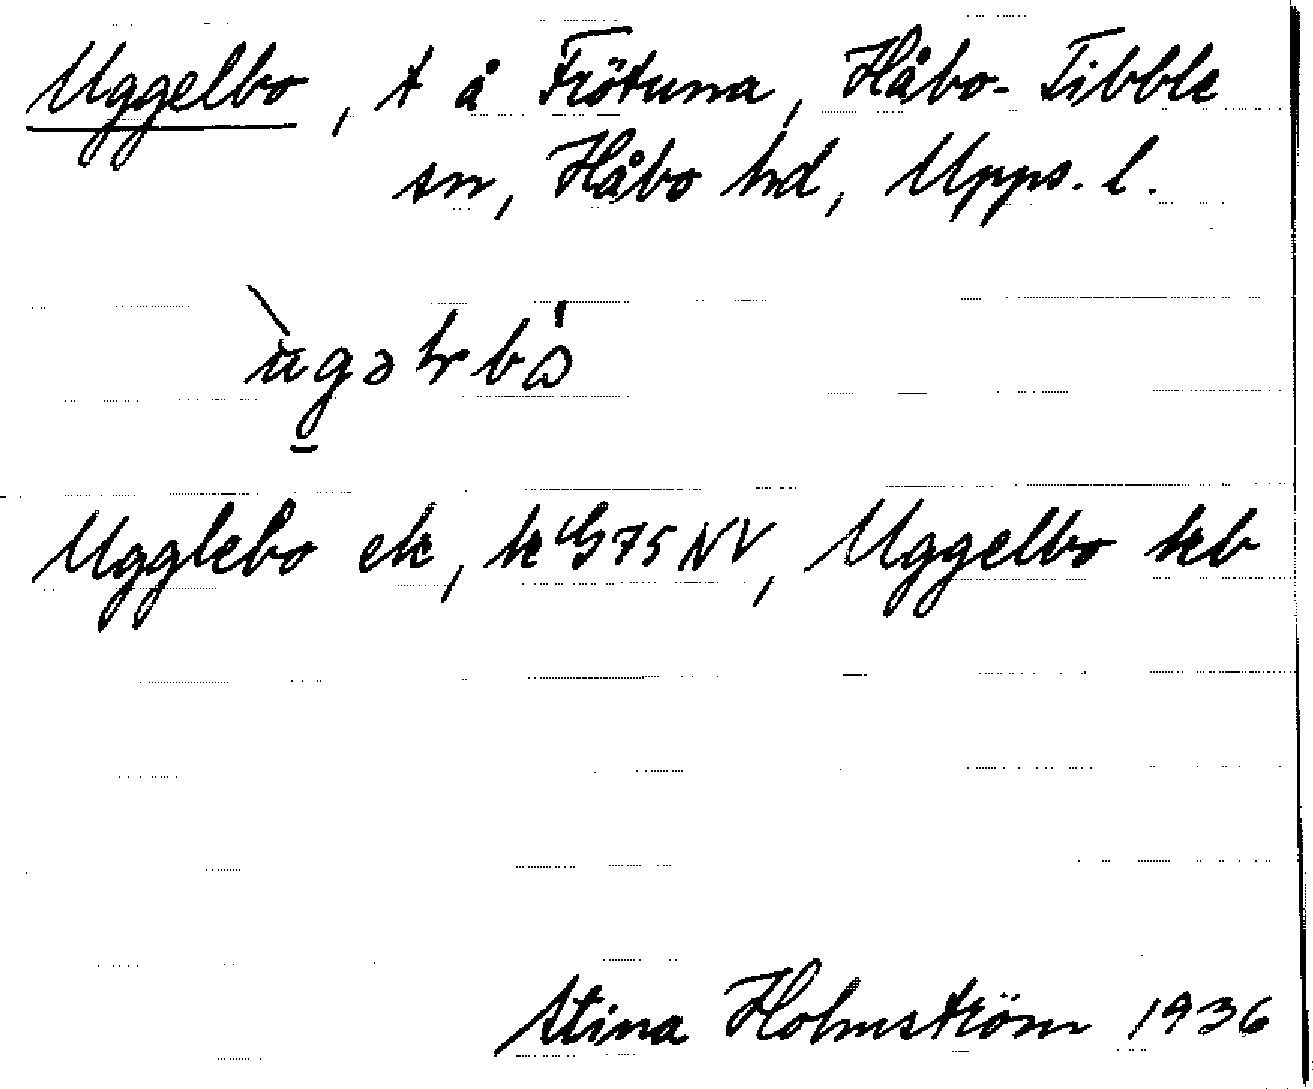 Uggelbo, t å Frötuna, Håbo-Tibble
sn, Håbo hd, Upps. l.
Ugglebo ek, k G 75 NV, Uggelbo kb
Stina Holmström 1936